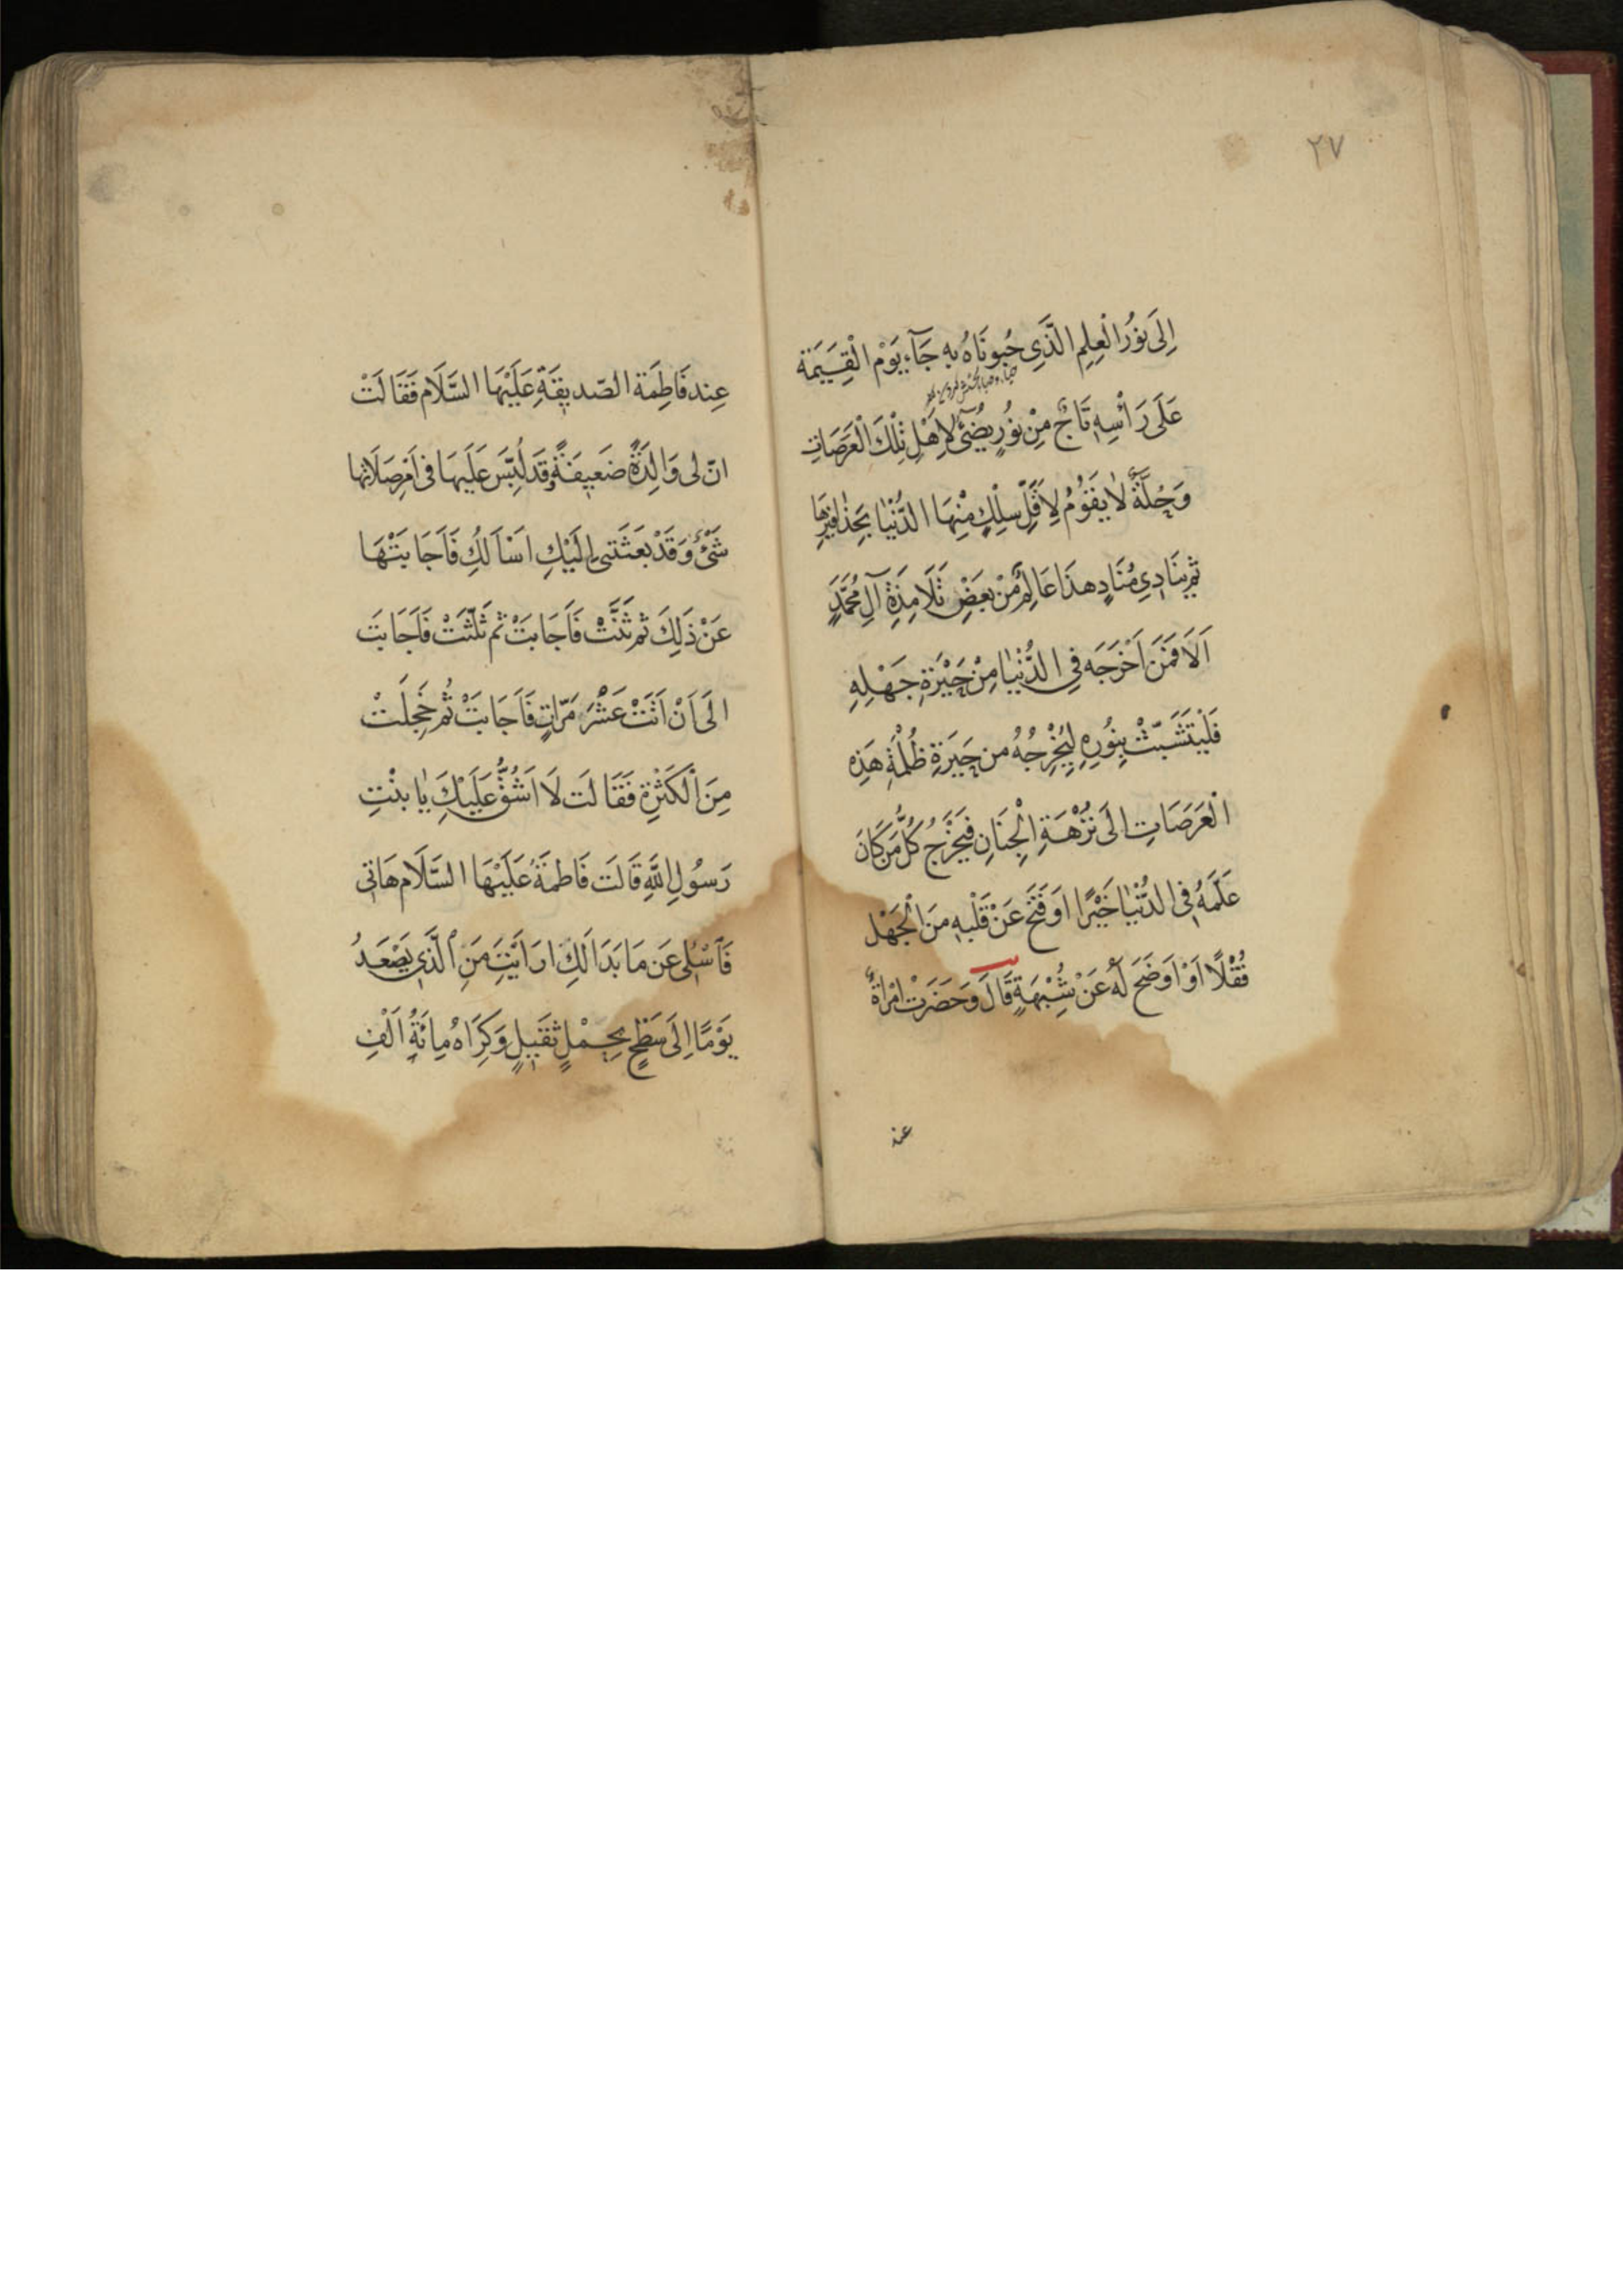 ٢٧
اِلَى نُورِ الْعِلِمِ الَّذَِى حُبونَاهُ بِهِ جَآءَ يَوْمَ الْقِيَمَة
عَلَى رَأْسِهِ تَاجٌ مِنْ نُورٍ يُضىٓءُ لِاَهْلِ تِلْكَ الْعَرَصَاتِ
وَحُلَّةٌ لٰا يَقوُمُ لِاَقَلِّ سِلْكٍ مِنْهَا الدُّنْيٰا بِحَذٰافيرِهَا
ثم يُنَادِى مُنَادٍ هذَا عَالِمٌ مِنْ بَعضِ تَلَامِذَةِ آلِ مُحَمَّدٍ
اَلَا فَمَنَ اَخْرَجَه فِى الدُّنْيٰا مِنْ حَيْرَةِ جَهْلِهِ
فَلْيَتَشَبَّثْ بِنُورِهِ لِيُخْرِجُهُ من حَيرَةِ ظُلْمَةِ هَذِه
الْعَرَصَاتِ الَى نُزْهَةِ الْجِنَانِ فَيَخْرُجُ كُلُّ مَن كَانَ
عَلَّمَهُ فِى الدُّنْيٰا خَيْرًا اَوَ فَتَحَ عَنْ قَلْبِهِ مِنَ الْجَهْل
قُفْلًا اَوْ اَوضَحَ لَهُ عَنْ شُبْهَةٍ قَالَ وَحَضَرَتْ امْرَاةٌ
عند
عِند فَاطِمَة الصّديقَةِ عَلَيْهَا السَّلَام فَقَالَتْ
انّ لى وَالِدَةً ضَعيفَةً وَقَد لُبِّسَ عَلَيهَا فى اَمْرِ صَلَاتِها
شَىْءٌ وَقَدْ بَعَثَتنى اِلَيْكِ اَسْاَلُكِ فَاَجَابَتْهَا
عَنْ ذَلِكَ ثم ثَنَّتْ فَاَجَابَتْ ثم ثَلَّثَتْ فَاَجَابَتَ
الَى اَنْ اَتَتْ عَشْرَ مَرّاتٍ فَاَجَابَتْ ثُم خَجِلَتْ
مِنَ الْكَثْرِة فَقَالَت لَا اَشُقُّ عَلَيكِ يٰا بنْتِ
رَسوُلِ اللهِ قَالَت فَاطمَةُ عَلَيْهَا السَّلَام هَاتى
فَاَسْئلى عَن مَا بَدَا لَكِ ارَاَيْتِ مَنِ الَّذى يَصْعَدُ
يَوْمًا اِلَى سَطْحٍ بِحِمْلٍ ثقَيلٍ وَكِرَاهُ مِائَةُ اَلْفِ